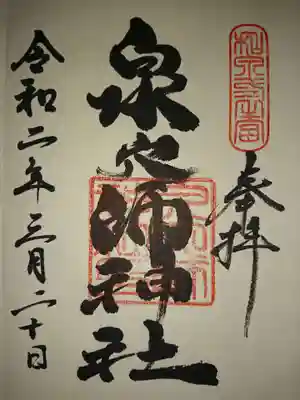 奉拝
泉穴師神社
令和二年三月二十日